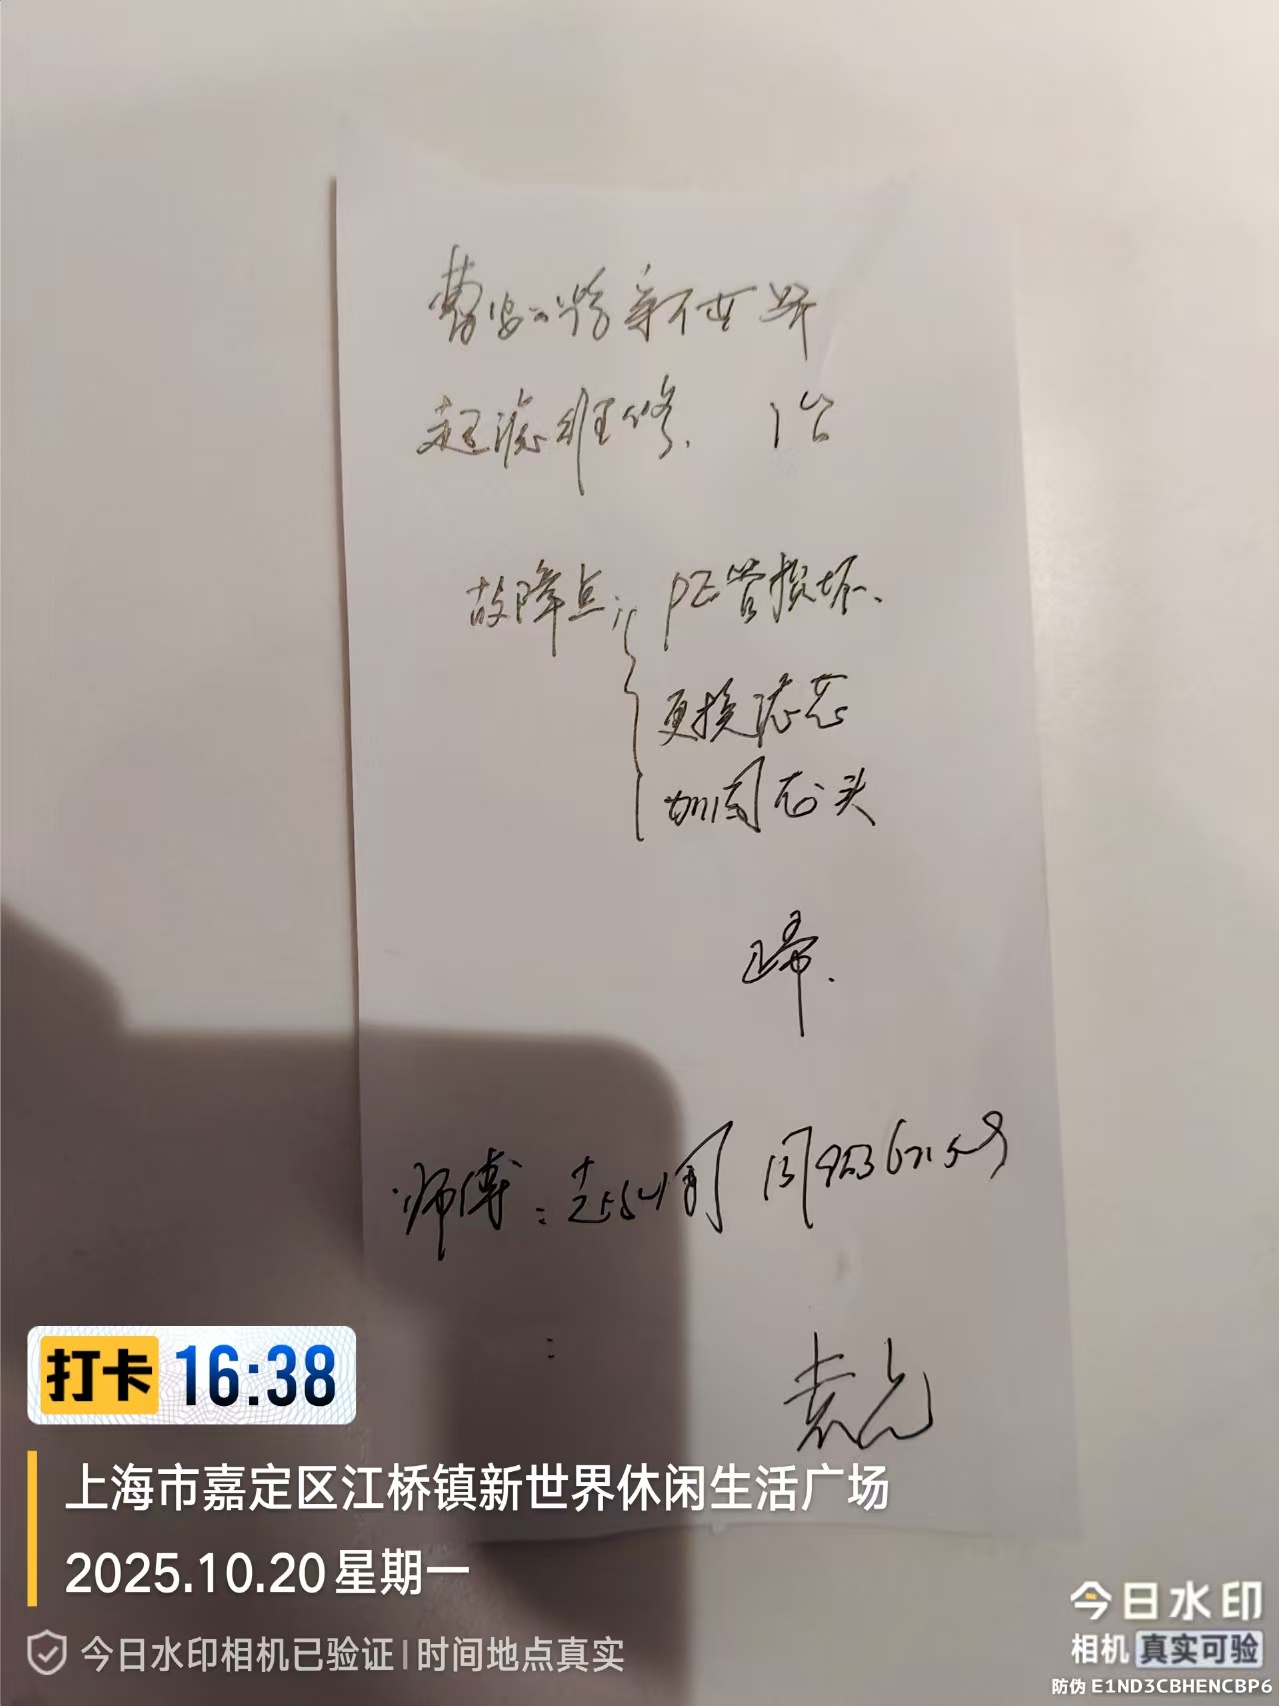 曹安公路新世界
超滤维修、 1台
故障点： PE管损坏、
更换滤芯
加固龙头
师傅：
打卡 16:38
上海市嘉定区江桥镇新世界休闲生活广场
2025.10.20 星期一
今日水印相机已验证 | 时间地点真实
今日水印
相机 真实可验
防伪 E1ND3CBHENCBP6